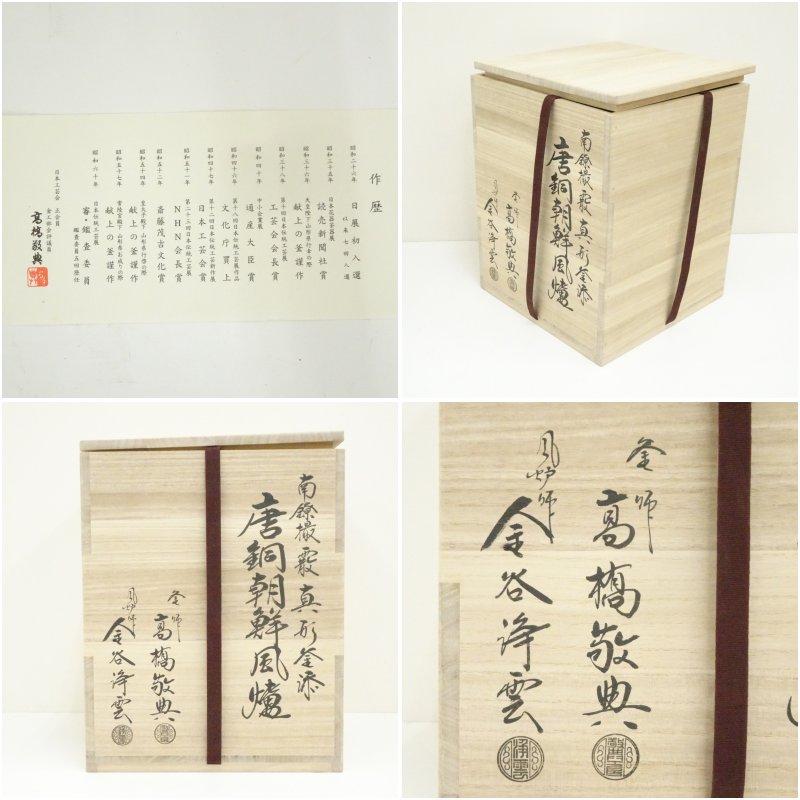 作歴
昭和二十六年
日展初入選
以来七回入選
昭和三十五年
日本花器茶器展
読売新聞社賞
昭和三十六年
天皇陛下山形県行幸の際
献上の釜謹作
昭和三十八年
第十回日本伝統工芸展
工芸会会長賞
昭和四十年
中小企業展
通産大臣賞
昭和四十六年
第十八回日本伝統工芸展作品
文化庁買上
昭和四十七年
第十二回日本伝統工芸新作展
日本工芸会賞
昭和五十一年
第二十三回日本伝統工芸展
NHK会長賞
昭和五十二年
斎藤茂吉文化賞
昭和五十四年
皇太子殿下山形県行啓の際
献上の釜謹作
昭和五十七年
常陸宮殿下山形県お成りの際
献上の釜謹作
昭和六十年
日本伝統工芸展
審・鑑査委員
鑑査委員五回歴任
日本工芸会 正会員
金工部会評議員
高橋敬典
南鐐撮霰真形釜添
唐銅朝鮮風爐
釜師
高橋敬典
風炉師
金谷浄雲
南鐐撮霰真形釜添
唐銅朝鮮風爐
釜師
高橋敬典
風炉師
金谷浄雲
釜師
高橋敬典
風炉師
金谷浄雲
浄雲